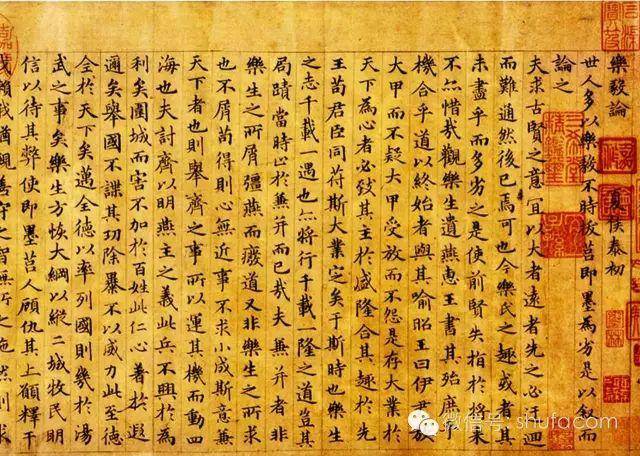 樂毅論 夏侯泰初
世人多以樂毅不時拔莒即墨為劣是以叙而
論之
夫求古賢之意宜以大者遠者先之必迂迴
而難通然後已焉可也今樂氏之趣或者其
未盡乎而多劣之是使前賢失指於將来
不亦惜哉觀樂生遺燕惠王書其殆庶乎
機合乎道以終始者與其喻昭王曰伊尹放
大甲而不疑大甲受放而不怨是存大業於
天下為心者必致其主於盛隆合其趣於先
王苟君臣同荷斯大業定矣于斯時也樂生
之志千載一遇也亦將行千載一隆之道豈其
局蹟當時止於兼并而已哉夫兼并者非
樂生之所屑彊燕而廢道又非樂生之所求
也不屑苟得則心無近事不求小成斯意兼
天下者也則舉齊之事所以運其機而動四
海也夫討齊以明燕主之義此兵不興於為
利矣圍城而害不加於百姓此仁心著於遐
邇矣舉國不謀其功除暴不以威力此至德
全於天下矣邁全德以率列國則幾於湯
武之事矣樂生方恢大綱以縱二城牧民明
信以待其弊使即墨莒人顧仇其上願釋干
戈賴我猶親善守之智無所之施然則求
微信号: shufacom